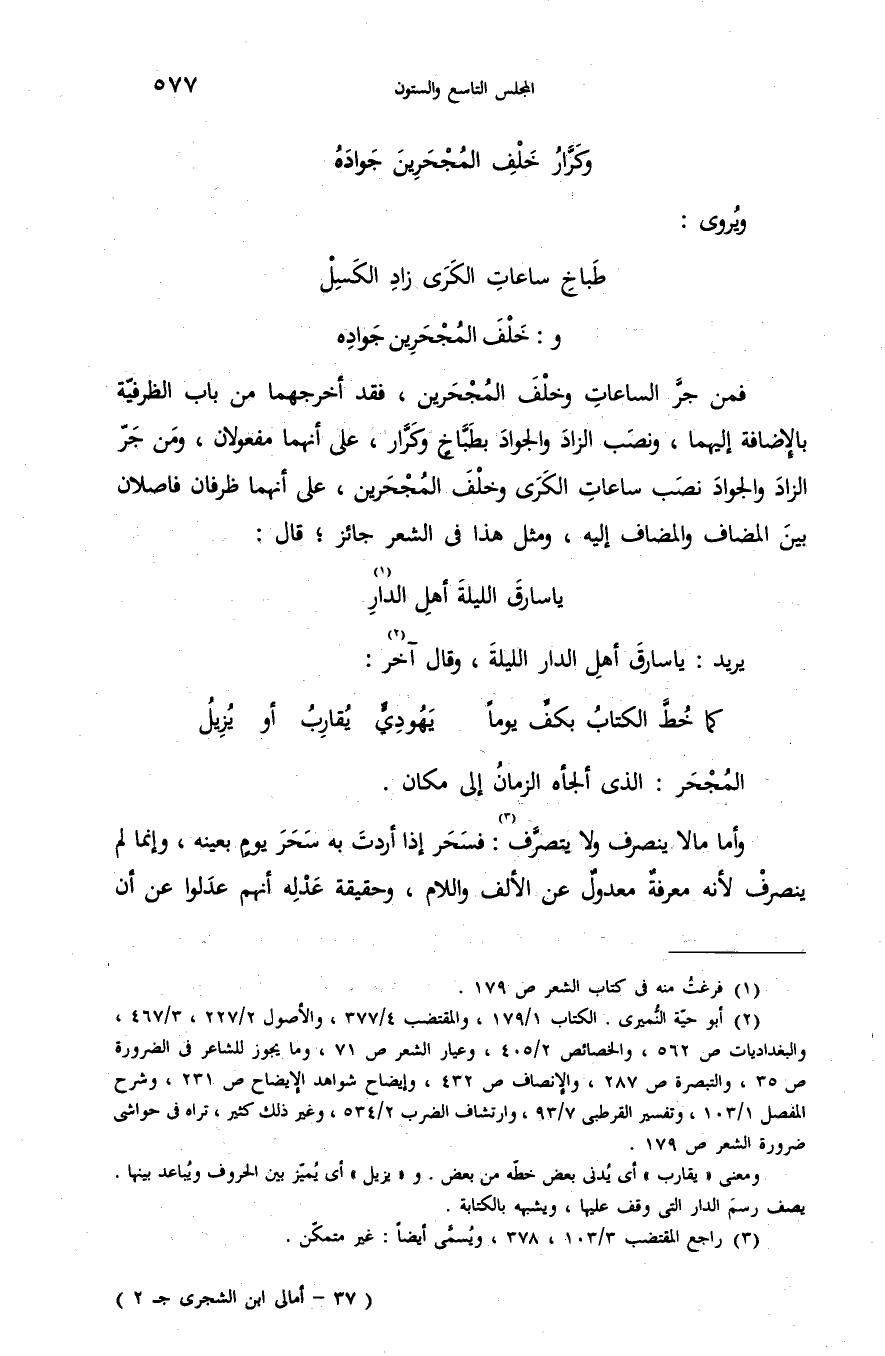 المجلس التاسع والستون ٥٧٧
وكَرَّارُ خَلْفِ المُجْحَرِينَ جَوادَهُ
ويُروى :
طَباخِ ساعاتِ الكَرَى زادِ الكَسِلْ
و : خَلْفَ المُجْحَرِين جَوادِه
فمن جرَّ الساعاتِ وخلْفَ المُجْحَرين ، فقد أخرجهما من باب الظرفيّة
بالإِضافة إليهما ، ونصَب الزادَ والجوادَ بطَبَّاخٍ وكَرَّار ، على أنهما مفعولان ، ومَن جَرّ
الزادَ والجوادَ نصَب ساعاتِ الكَرَى وخلْفَ المُجْحَرين ، على أنهما ظرفان فاصلان
بينَ المضاف والمضاف إليه ، ومثل هذا فى الشعر جائز ؛ قال :
ياسارقَ الليلةَ أهلِ الدارِ(١)
يريد : ياسارقَ أهلِ الدار الليلةَ ، وقال آخر(٢) :
كما خُطَّ الكتابُ بكفِّ يوماً يَهُودِيٍّ يُقارِبُ أو يُزِيلُ
المُجْحَر : الذى ألجأه الزمانُ إلى مكان .
وأما مالا ينصرف ولا يتصرَّف(٣) : فسَحَر إذا أردتَ به سَحَرَ يومٍ بعينه ، وإنما لم
ينصرفْ لأنه معرفةٌ معدولٌ عن الألف واللام ، وحقيقة عَدْلِه أنهم عدَلوا عن أن
(١) فرغتُ منه فى كتاب الشعر ص ١٧٩ .
(٢) أبو حيّة النُّميرى . الكتاب ١٧٩/١ ، والمقتضب ٣٧٧/٤ ، والأصول ٢٢٧/٢ ، ٤٦٧/٣ ،
والبغداديات ص ٥٦٢ ، والخصائص ٤٠٥/٢ ، وعيار الشعر ص ٧١ ، وما يجوز للشاعر فى الضرورة
ص ٣٥ ، والتبصرة ص ٢٨٧ ، والإنصاف ص ٤٣٢ ، وإيضاح شواهد الإيضاح ص ٢٣١ ، وشرح
المفصل ١٠٣/١ ، وتفسير القرطبى ٩٣/٧ ، وارتشاف الضرب ٥٣٤/٢ ، وغير ذلك كثير ، تراه فى حواشى
ضرورة الشعر ص ١٧٩ .
ومعنى « يقارب » أى يُدنى بعض خطّه من بعض . و « يزيل » أى يُميّز بين الحروف ويُباعد بينها .
يصف رسمَ الدار التى وقف عليها ، ويشبهه بالكتابة .
(٣) راجع المقتضب ١٠٣/٣ ، ٣٧٨ ، ويُسمَّى أيضاً : غير متمكّن .
( ٣٧ – أمالى ابن الشجرى جـ ٢ )